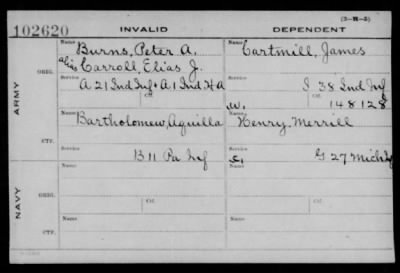 (3-H-3)
102620 INVALID DEPENDENT
ARMY
NAVY
ORIG.
Name Burns, Peter A.
alias Carroll, Elias J.
Service A 21 Ind Inf + A 1 Ind H A
Name Cartmill, James
Service I 38 Ind Inf
W. Ctf. 148128
CTF.
Name Bartholomew, Aquilla
Service B 11 Pa Inf
Name Henry, Merrill
Service G 27 Mich Inf
ORIG.
Name
Ctf.
Name
Ctf.
CTF.
Name
Name